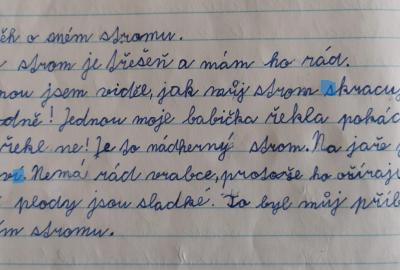 ěh o mém stromu.
strom je třešeň a mám ho rád.
nou jsem viděl, jak můj strom skracuj
odně! Jednou moje babička řekla pokác
řekl ne! Je to nádherný strom. Na jaře
Nemá rád vrabce, protože ho ožíraj
plody jsou sladké. To byl můj příb
ém stromu.